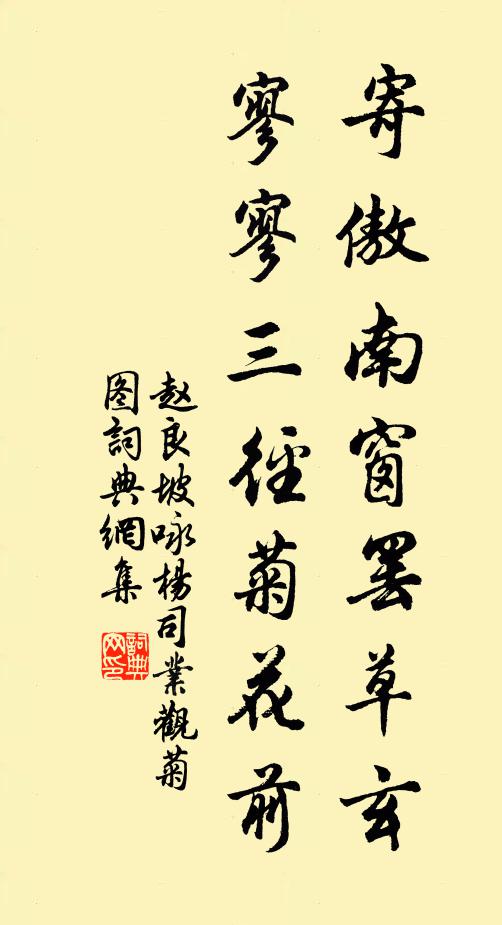 寄傲南窗罢草玄
寥寥三径菊花前
赵良坡咏杨司业观菊
图词典网集
词典网印